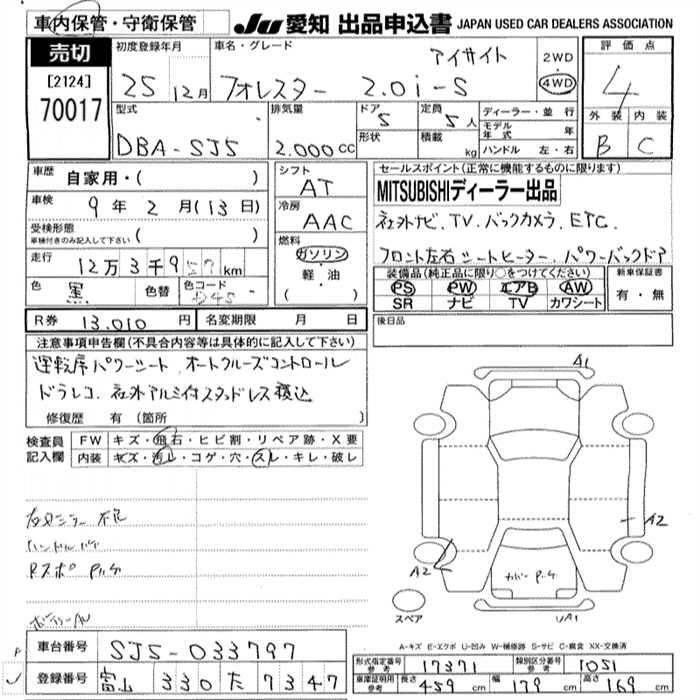 車内保管・守衛保管
JU 愛知 出品申込書 JAPAN USED CAR DEALERS ASSOCIATION
売切
[2124]
70017
初度登録年月
25 12月
車名・グレード
アイサイト
フォレスター 2.0i-S
2WD
4WD
評価点
4
外装 内装
B C
型式
DBA-SJ5
排気量
2.000cc
ドア
5
形状
定員
5人
積載
kg
ディーラー・並行
モデル年式 年
ハンドル 左・右
車歴 自家用・( )
車検 9年2月(13日)
受検形態
車検付きのみ記入して下さい ( )
走行 12万3千9 km
色 黒 色替 色コード
シフト
AT
冷房
AAC
燃料
ガソリン
軽・油
( )
セールスポイント(正常に機能するものに限ります)
MITSUBISHIディーラー出品
社外ナビ.TV.バックカメラ.ETC.
フロント左右シートヒーター.パワーバックドア
装備品(純正品に限り○をつけてください)
PS PW エアB AW
SR ナビ TV カワシート
新車保証書
有・無
R券 13,010円 名変期限 月 日
後日品
注意事項申告欄(不具合内容等は具体的に記入して下さい)
運転席パワーシート.オートクルーズコントロール
ドラレコ.社外アルミ付スタッドレス積込
修復歴 有(箇所 )
検査員記入欄
FW キズ・飛石・ヒビ割・リペア跡・X要
内装 キズ・汚レ・コゲ・穴・スレ・キレ・破レ
A1
A2
A2
UA1
スペア
A-キズ E-エクボ U-凹み W-補修跡 S-サビ C-腐食 XX-交換済
車台番号 SJ5-033797
登録番号 富山 330 た 7347
形式指定番号 参考 17371 類別区分番号 参考 1051
車庫証明用 参考 長さ 459cm 幅 179cm 高さ 169cm